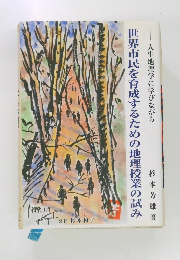 世界市民を育成するための地理授業の試み
―人生地理学に学びながら
杉本芳雄著
1991.